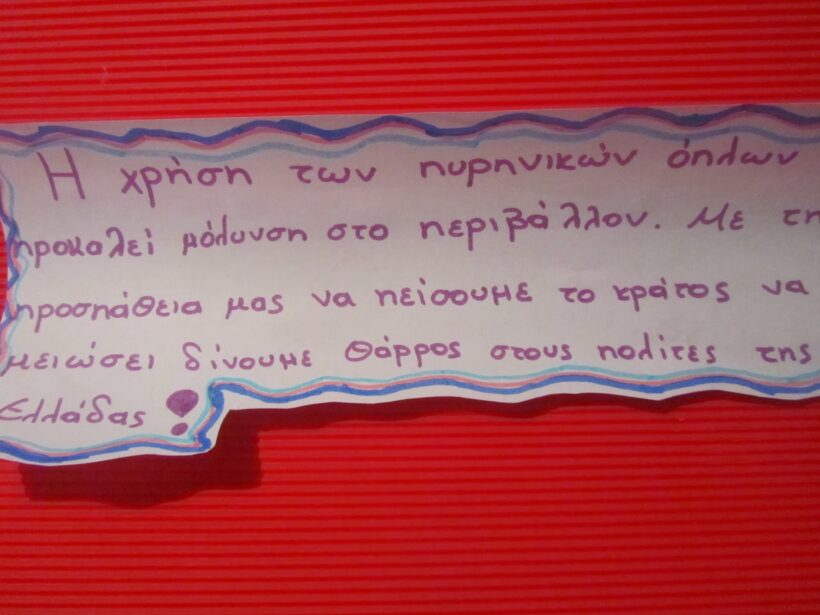 Η χρήση των πυρηνικών όπλων
προκαλεί μόλυνση στο περιβάλλον. Με τη
προσπάθεια μας να πείσουμε το κράτος να
μειώσει δίνουμε θάρρος στους πολίτες της
Ελλάδας !